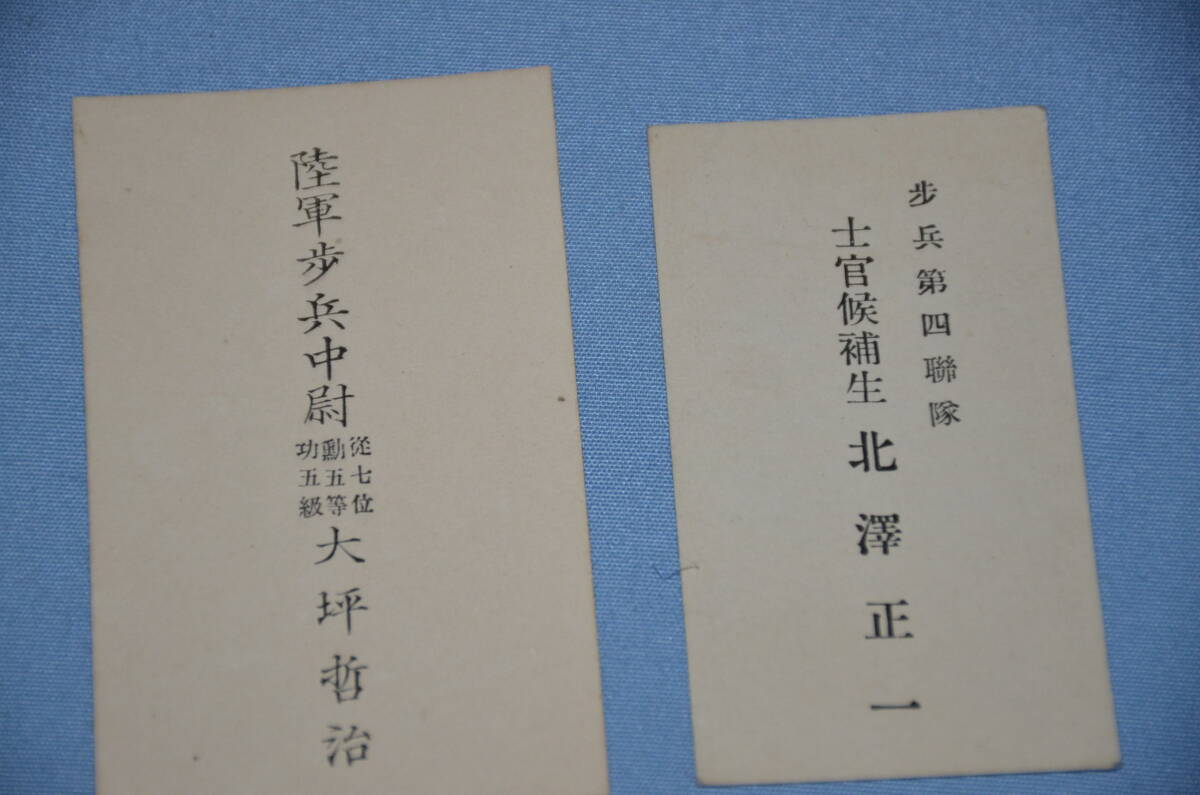 陸軍步兵中尉
從七位
勳五等
功五級
大坪哲治
步兵第四聯隊
士官候補生 北澤正一